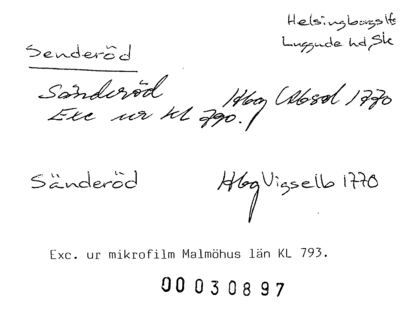 Helsingborgs lfs
Luggude hd, Sk
Senderöd
Sänderöd Hbg Absol 1770
Exc ur KL 790.
Sänderöd Hbg Vigselb 1770
Exc. ur mikrofilm Malmöhus län KL 793.
00030897